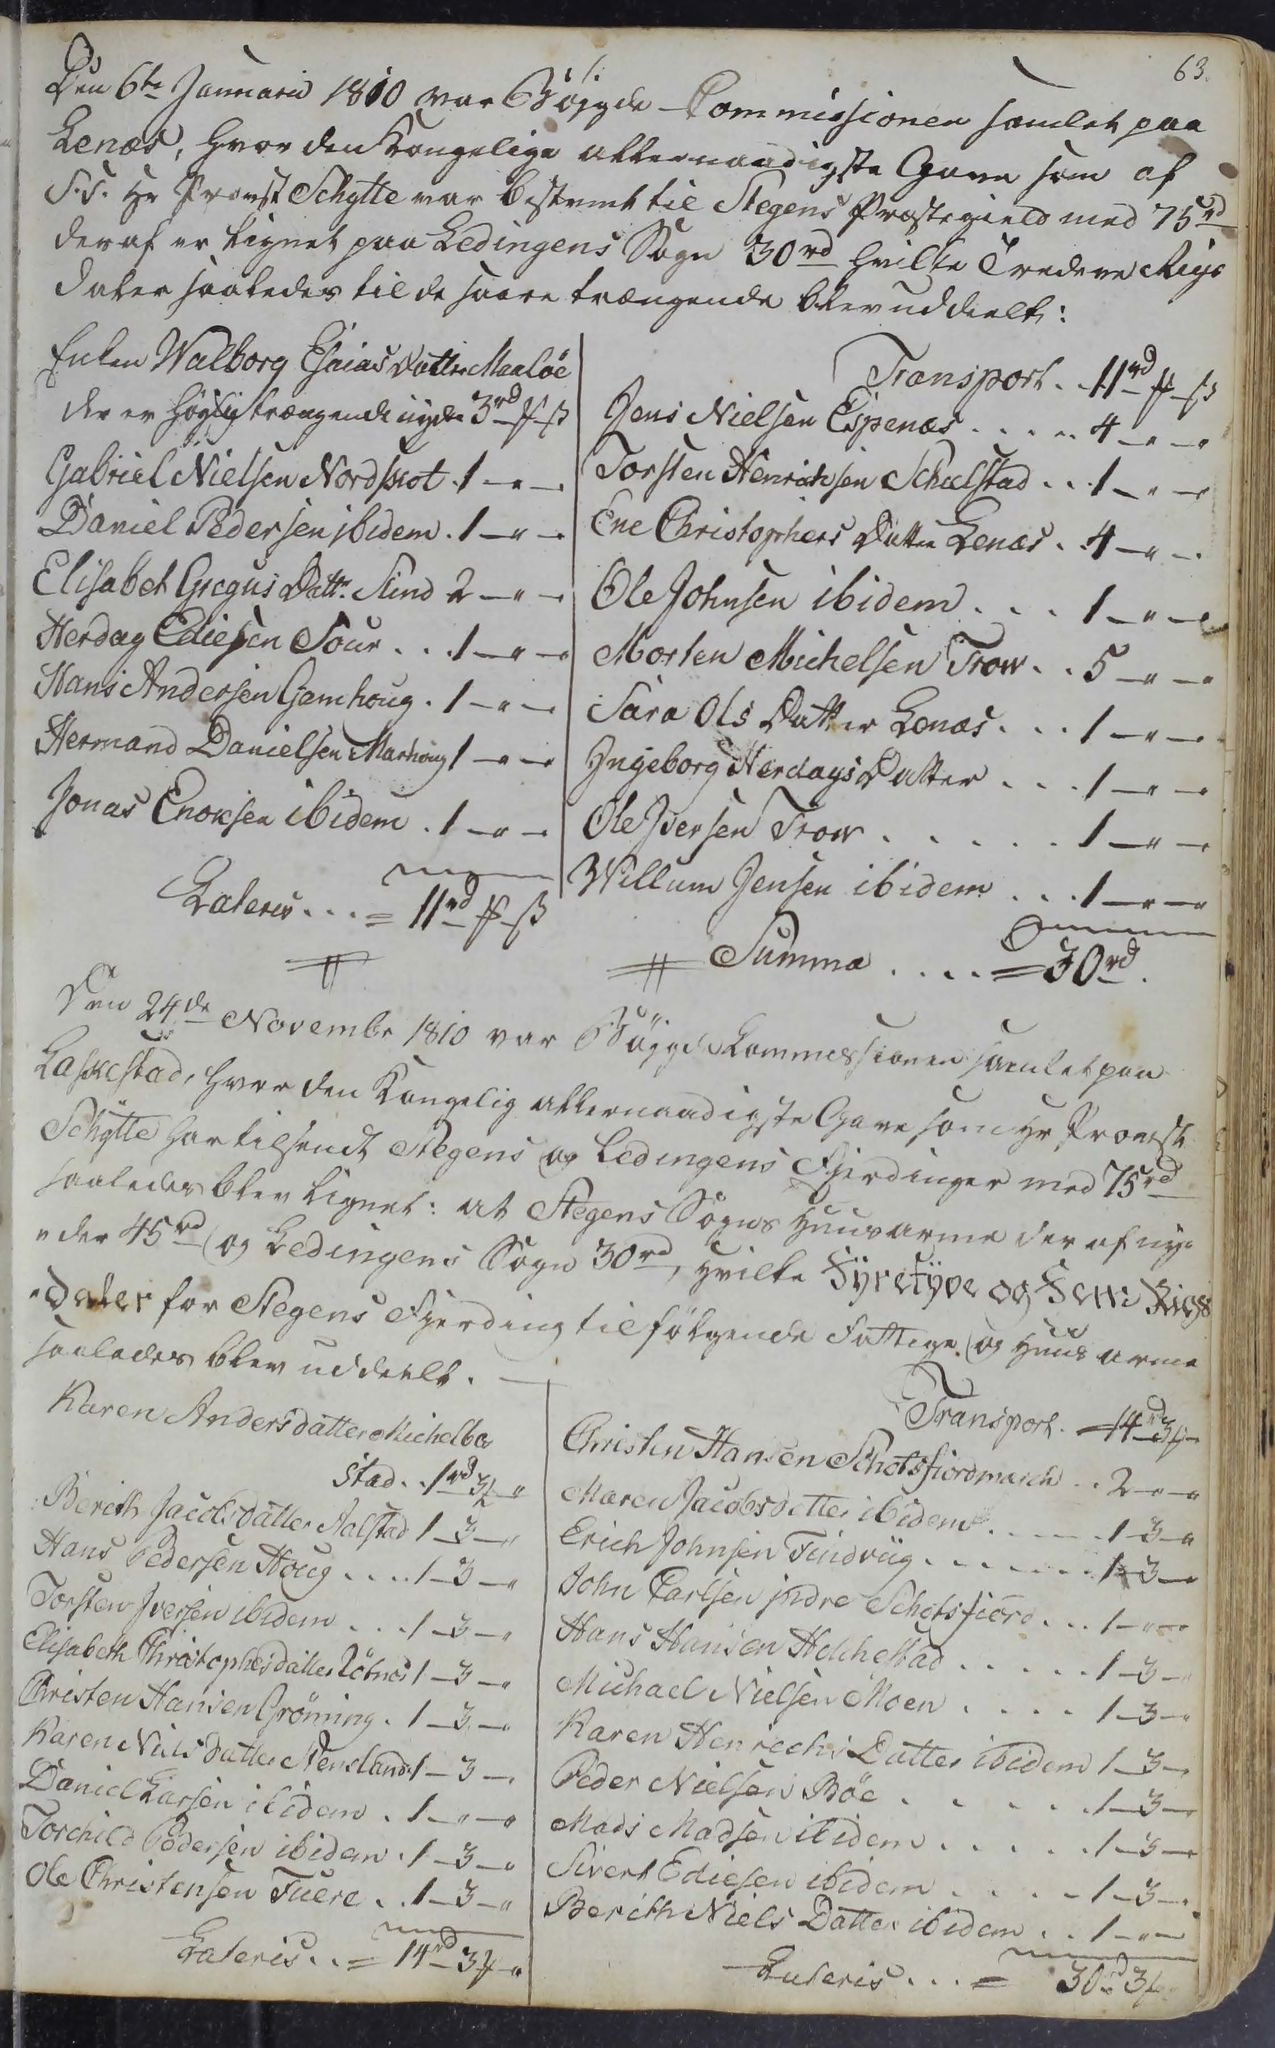 63.
Den 6te Januarii 1810 var Böjgde-Commissionen samlet paa
Lenæs, hvor den Kongelige allernaadigste Gave som af
S.T. Hr Provst Schytte var bestemt til Stegens Præstegield med 75rd
deraf er lignet paa Ledingens Sogn 30rd hvilke Tredeve Rigs
daler saaledes til de saare trængende blev uddeelt:
Enken Walborg Esaias Datter Maaløe
der er høylig trængende nyder 3rd ß
Gabriel Nielsen Nordskot . 1 - " -
Daniel Pedersen ibidem . 1 - " -
Elisabet Gregus Dattr. Sund 2 - " -
Herdag Ediesen Sour . . . 1 - " -
Hans Andersen Gamhoug . 1 - " -
Hermand Danielsen Marhoug 1 - " -
Jonas Enoksen ibidem . 1 - " -
Lateris . . . = 11rd ß
Transport . . 11rd ß
Jens Nielsen Espenæs . . . . . 4 - " -
Torsten Henriksen Schielstad . . . 1 - " -
Ene Christophers Datter Lenæs . . 4 - " -
Ole Johnsen ibidem . . . . 1 - " -
Morten Michelsen Trow . . 5 - " -
Sara Ols Datter Lenæs . . . 1 - " -
Ingeborg Herdags Datter . . . 1 - " -
Ole Iversen Trow . . . . . . 1 - " -
Willum Jensen ibidem . . . 1 - " -
Summa . . . . = 30rd.
Den 24de Novembr 1810 var Böjgde Commissionen samlet paa
Laskestad, hvor den Kongelig allernaadigste Gave som Hr Provst
Schytte har tilsendt Stegens og Ledingens Fjerdinger med 75rd
saaledes blev lignet: at Stegens Sogns Huusarme deraf ny-
"der 45rd og Ledingens Sogn 30rd, hvilke Fyretyve og Fem Rigs
"daler for Stegens Fjerding til følgende Fattige og Huus arme
saaledes blev uddeelt.
Karen Andersdatter Michelboe
stad . . 1rd 3 "
Berith Jacobsdatter Aalstad 1 - 3 - "
Hans Pedersen Houg . . . . 1 - 3 - "
Torsten Iversen ibidem . . . 1 - 3 - "
Elisabeth Christophersdatter Löfnæs 1 - 3 - "
Christen Hansen Gröning . 1 - 3 - "
Karen Niels Datter Nensland 1 - 3 - "
Daniel Larsen ibidem . 1 - " - "
Torchild Pedersen ibidem . 1 - 3 - "
Ole Christensen Fuere . . 1 - 3 - "
Lateris . . = 14rd 3 "
Transport . 14rd 3
Christen Hansen Schotsfiordmarch . . 2 - " - "
Maren Jacobsdatter ibidem . . . . . 1 - 3 - "
Erich Johnsen Tindviig . . . . . . . 1 - 3 - "
John Carlsen indre Schotsfiord . . . 1 - " - "
Hans Hansen Holchestad . . . . . 1 - 3 - "
Michael Nielsen Moen . . . . 1 - 3 - "
Karen Henrichs Datter ibidem 1 - 3 - "
Peder Nielsen Böe . . . . . . 1 - 3 - "
Mads Madsen ibidem . . . . . 1 - 3 - "
Sivert Ediesen ibidem . . . . . 1 - 3 - "
Berith Niels Datter ibidem . . 1 - " -
Lateris . . . = 30rd 3